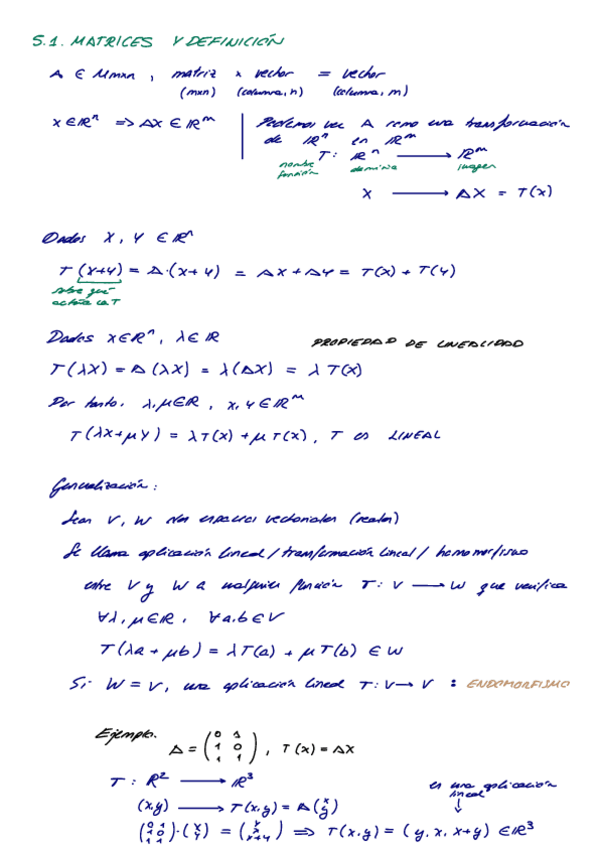 5.1. MATRICES Y DEFINICIÓN
A ∈ Mmxn , matriz x vector = vector
(mxn) (columna, n) (columna, m)
x ∈ ℝⁿ ⇒ AX ∈ ℝᵐ
Podemos ver A como una transformación
de ℝⁿ en ℝᵐ
T : ℝⁿ ⟶ ℝᵐ
nombre función dominio imagen
X ⟶ AX = T(x)
Dados X, Y ∈ ℝⁿ
T (x+y) = A·(x+y) = AX + AY = T(x) + T(y)
sobre qué
actúa la T
Dados x ∈ ℝⁿ, λ ∈ ℝ
PROPIEDAD DE LINEALIDAD
T(λX) = A(λX) = λ(AX) = λ T(x)
Por tanto. λ,μ ∈ ℝ , x,y ∈ ℝᵐ
T(λx+μy) = λT(x) + μT(x), T es LINEAL
Generalización:
Sean V, W dos espacios vectoriales (reales)
Se llama aplicación lineal / transformación lineal / homomorfismo
entre V y W a cualquier función T: V ⟶ W que verifica
∀λ, μ ∈ ℝ, ∀a,b ∈ V
T(λa + μb) = λT(a) + μT(b) ∈ W
Si W = V, una aplicación lineal T: V ⟶ V : ENDOMORFISMO
Ejemplo.
A = (0 1
1 0
1 1) , T(x) = AX
T : ℝ² ⟶ ℝ³
es una aplicación
lineal
(x,y) ⟶ T(x,y) = A(x y)
(0 1 1 0 1 1)·(x y) = (y x x+y) ⇒ T(x,y) = (y, x, x+y) ∈ ℝ³